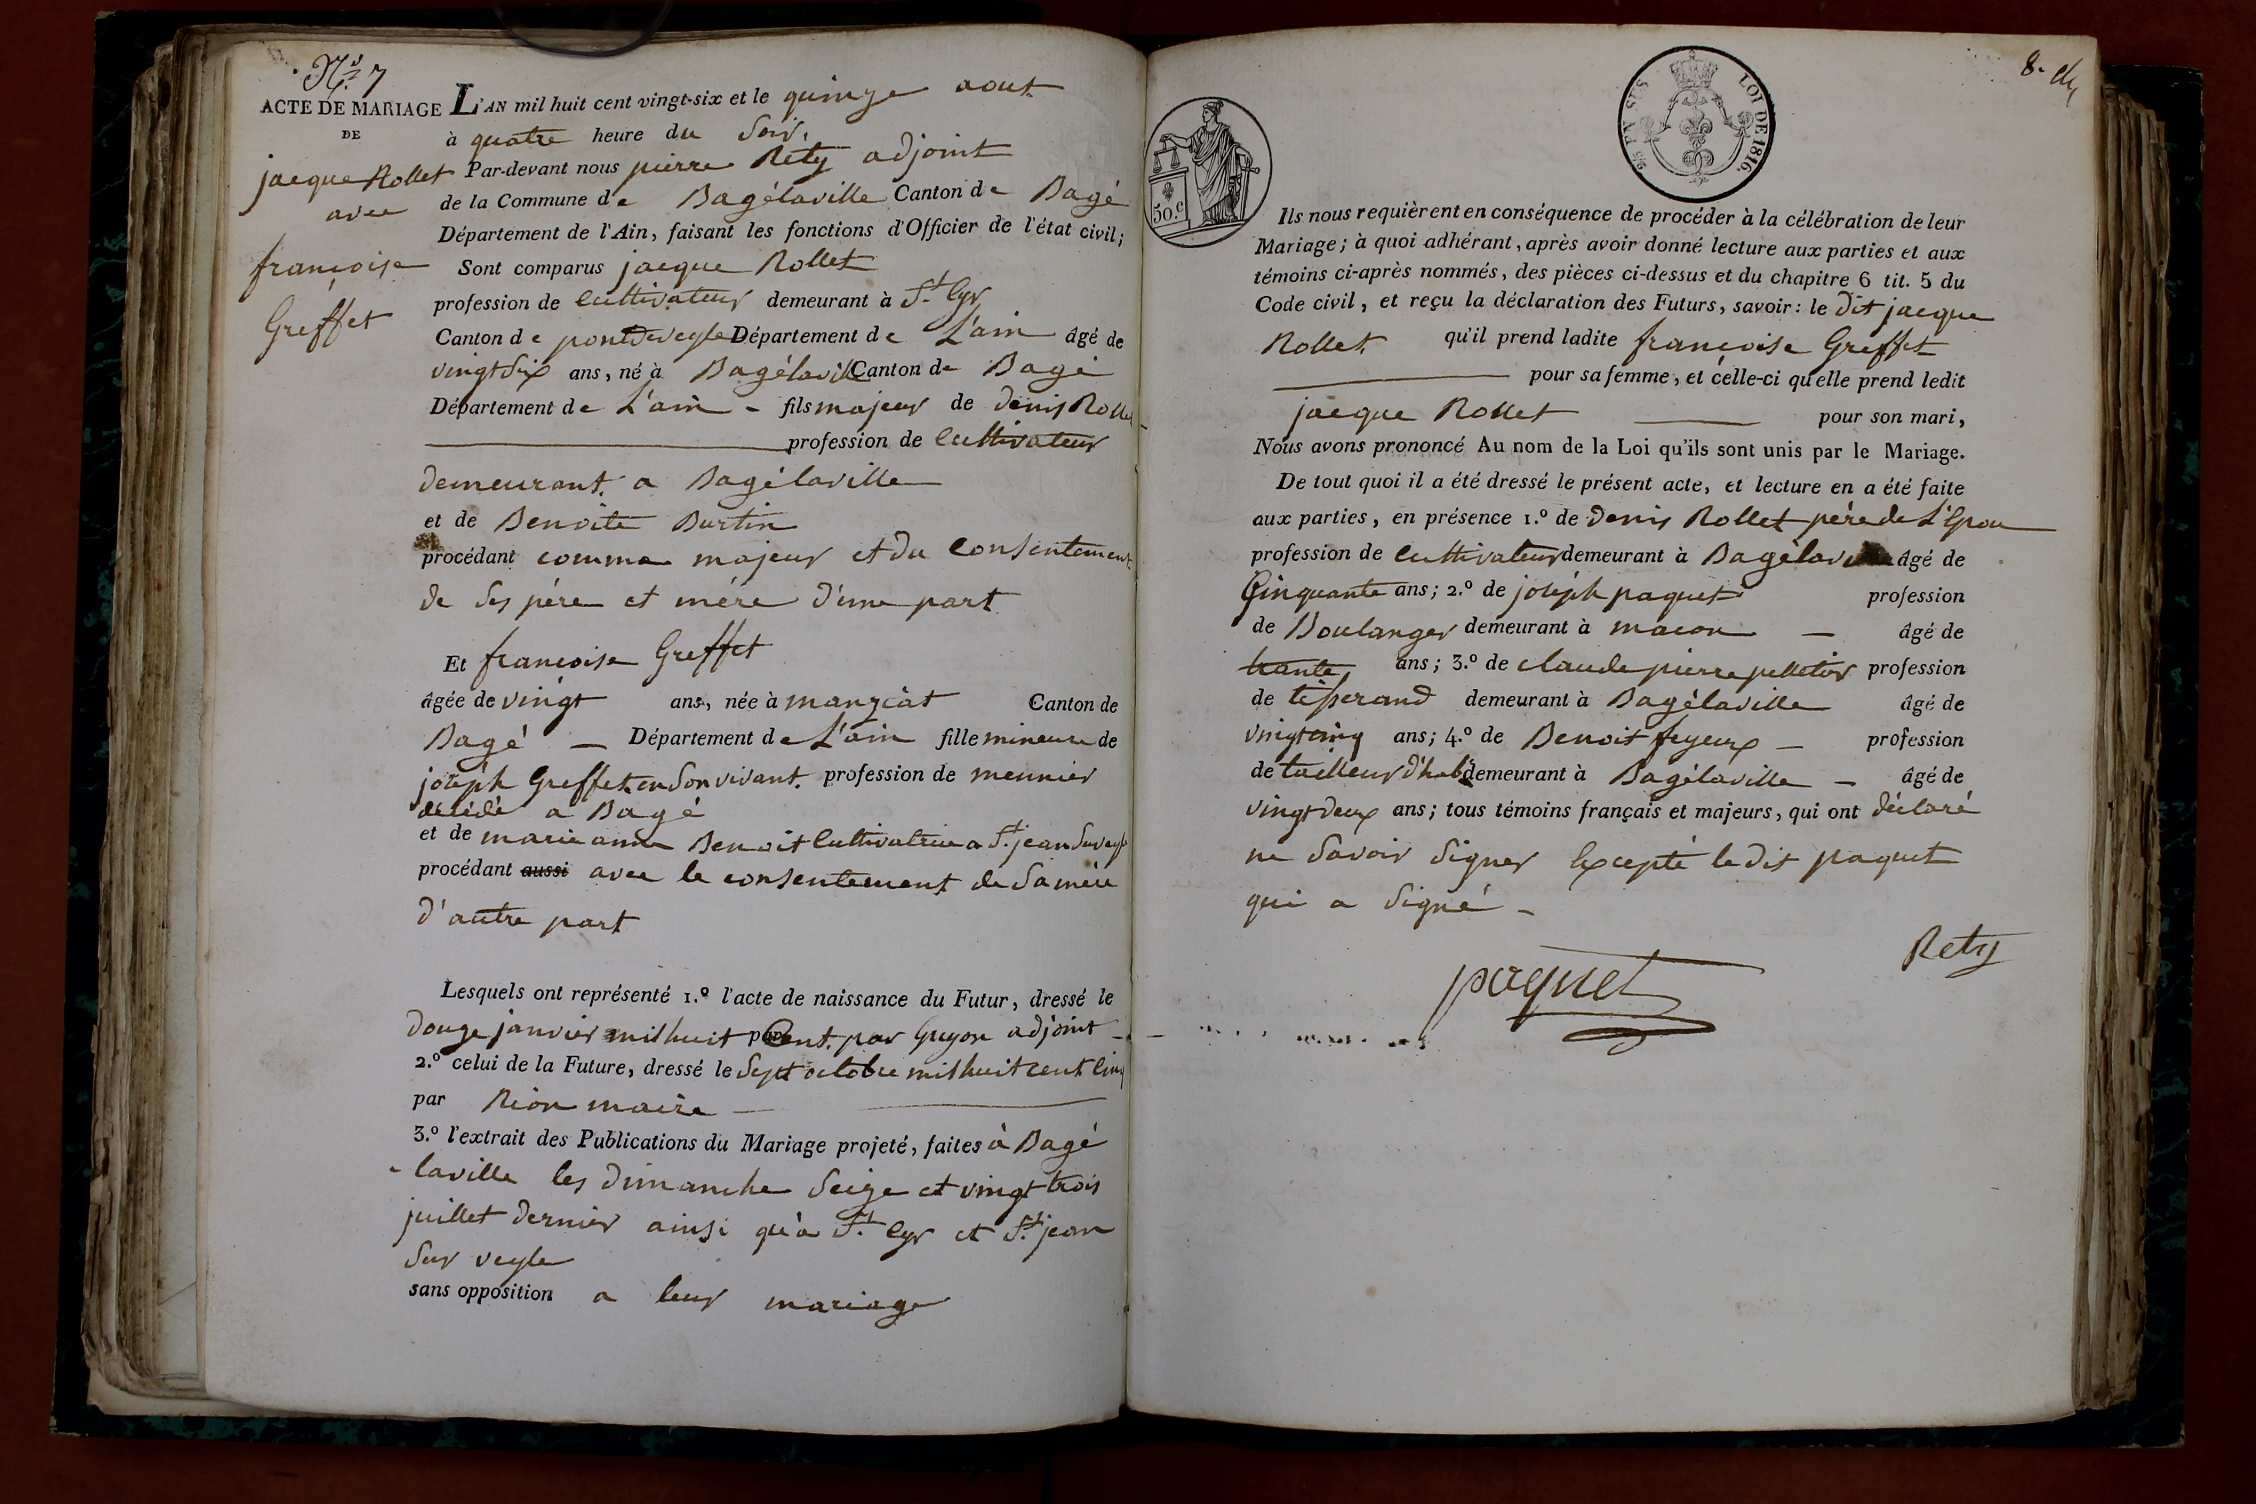 N.° 7
ACTE DE MARIAGE
DE
jacque Rollet
avec
françoise
Greffet
L'AN mil huit cent vingt-six et le quinze aout
à quatre heure du soir,
Par-devant nous pierre Réty adjoint
de la Commune de Bagélaville Canton de Bagé
Département de l'Ain, faisant les fonctions d'Officier de l'état civil;
Sont comparus jacque Rollet
profession de Cultivateur demeurant à S.t Cyr
Canton de pontdeveyle Département de L'ain âgé de
vingt six ans, né à Bagélaville Canton de Bagé
Département de L'ain - fils majeur de denis Rollet
profession de Cultivateur
demeurant a Bagélaville
et de Benoite Burtin
procédant comme majeur et du Consentement
de ses pére et mére d'une part
Et françoise Greffet
âgée de vingt ans, née à manziat Canton de
Bagé — Département de L'ain fille mineure de
joseph Greffet en son vivant profession de meunier
décédé a Bagé
et de marie anne Benoit Cultivatrice a S.t jean sur veyle
procédant aussi avec le consentement de sa mére
d'autre part
Lesquels ont représenté 1.° l'acte de naissance du Futur, dressé le
douze janvier mil huit Cent par Guyon adjoint
2.° celui de la Future, dressé le Sept octobre mil huit cent Cinq
par Rion maire
3.° l'extrait des Publications du Mariage projeté, faites à Bagé
laville les dimanche seize et vingt trois
juillet dernier ainsi qu'à S.t Cyr et S.t jean
sur veyle
sans opposition a leur mariage
8.
50.c
LOI DE 1816.
Ils nous requièrent en conséquence de procéder à la célébration de leur
Mariage; à quoi adhérant, après avoir donné lecture aux parties et aux
témoins ci-après nommés, des pièces ci-dessus et du chapitre 6 tit. 5 du
Code civil, et reçu la déclaration des Futurs, savoir: le dit jacque
Rollet qu'il prend ladite françoise Greffet
pour sa femme, et celle-ci qu'elle prend ledit
jacque Rollet — pour son mari,
Nous avons prononcé Au nom de la Loi qu'ils sont unis par le Mariage.
De tout quoi il a été dressé le présent acte, et lecture en a été faite
aux parties, en présence 1.° de denis Rollet pére de L'Epou
profession de Cultivateur demeurant à Bagélaville âgé de
Cinquante ans; 2.° de joséph paquet profession
de Boulanger demeurant à macon — âgé de
trante ans; 3.° de claude pierre pelletier profession
de tisserand demeurant à Bagélaville âgé de
vingt cinq ans; 4.° de Benoit feyeux — profession
de tailleur d'habit demeurant à Bagélaville — âgé de
vingt deux ans; tous témoins français et majeurs, qui ont déclaré
ne savoir signer Excepté le dit paquet
qui a signé -
Rety
paquet